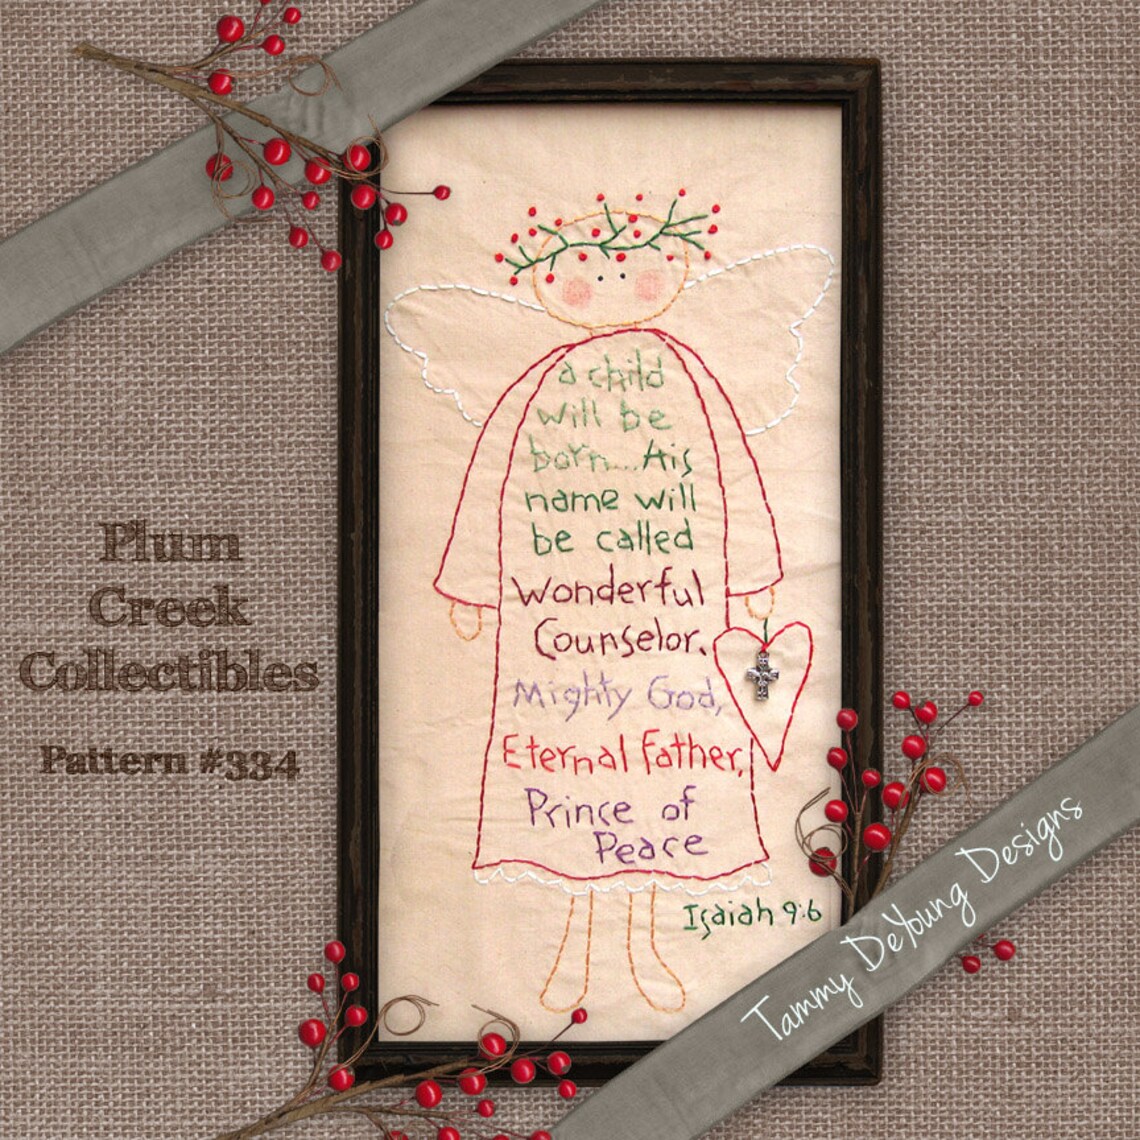 Plum
Creek
Collectibles
Pattern #334
a child
will be
born...His
name will
be called
Wonderful
Counselor.
Mighty God,
Eternal Father,
Prince of
Peace
Isaiah 9:6
Tammy DeYoung Designs